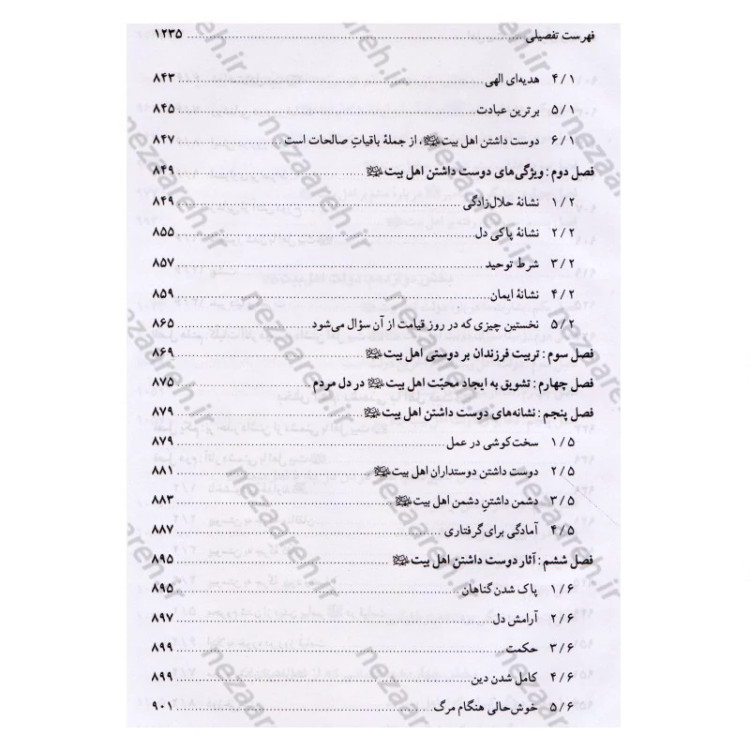 فهرست تفصیلی ........ ۱۲۳۵
۴/۱ هدیه‌ای الهی ........ ۸۴۳
۵/۱ برترین عبادت ........ ۸۴۵
۶/۱ دوست داشتن اهل بیت، از جملۀ باقیاتِ صالحات است ........ ۸۴۷
فصل دوم: ویژگی‌های دوست داشتن اهل بیت ........ ۸۴۹
۱/۲ نشانۀ حلال‌زادگی ........ ۸۴۹
۲/۲ نشانۀ پاکی دل ........ ۸۵۵
۳/۲ شرط توحید ........ ۸۵۷
۴/۲ نشانۀ ایمان ........ ۸۵۹
۵/۲ نخستین چیزی که در روز قیامت از آن سؤال می‌شود ........ ۸۶۵
فصل سوم: تربیت فرزندان بر دوستی اهل بیت ........ ۸۶۹
فصل چهارم: تشویق به ایجاد محبّت اهل بیت در دل مردم ........ ۸۷۵
فصل پنجم: نشانه‌های دوست داشتن اهل بیت ........ ۸۷۹
۱/۵ سخت‌کوشی در عمل ........ ۸۷۹
۲/۵ دوست داشتن دوستداران اهل بیت ........ ۸۸۱
۳/۵ دشمن داشتنِ دشمن اهل بیت ........ ۸۸۳
۴/۵ آمادگی برای گرفتاری ........ ۸۸۷
فصل ششم: آثار دوست داشتن اهل بیت ........ ۸۹۵
۱/۶ پاک شدن گناهان ........ ۸۹۵
۲/۶ آرامش دل ........ ۸۹۷
۳/۶ حکمت ........ ۸۹۹
۴/۶ کامل شدن دین ........ ۸۹۹
۵/۶ خوش‌حالی هنگام مرگ ........ ۹۰۱
nezaareh.ir